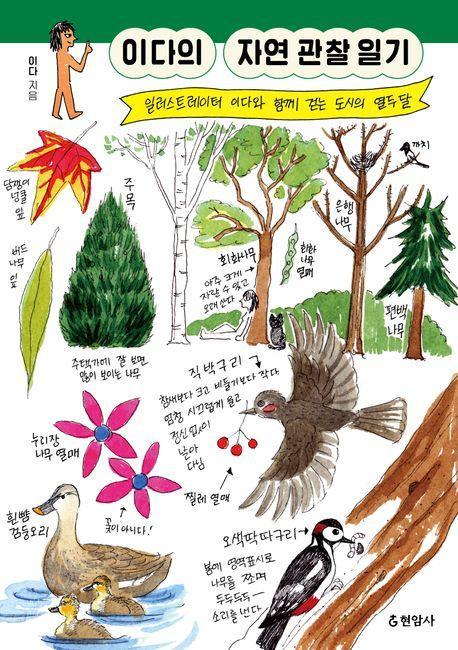 이다의 자연 관찰 일기
이다 지음
일러스트레이터 이다와 함께 걷는 도시의 열두 달
까치
담쟁이
덩굴
잎
주목
은행
나무
회화나무
아주 크게
자랄 수 있고
오래 산다
회화
나무
열매
버드
나무
잎
편백
나무
주택가에 잘 보면
많이 보이는 나무
직박구리
참새보다 크고 비둘기보다 작다
엄청 시끄럽게 울고
정신없이
날아
다님
누리장
나무 열매
찔레 열매
꽃이 아니다!
흰뺨
검둥오리
오색딱따구리
봄에 영역표시로
나무를 쪼며
두두두두―
소리를 낸다
현암사